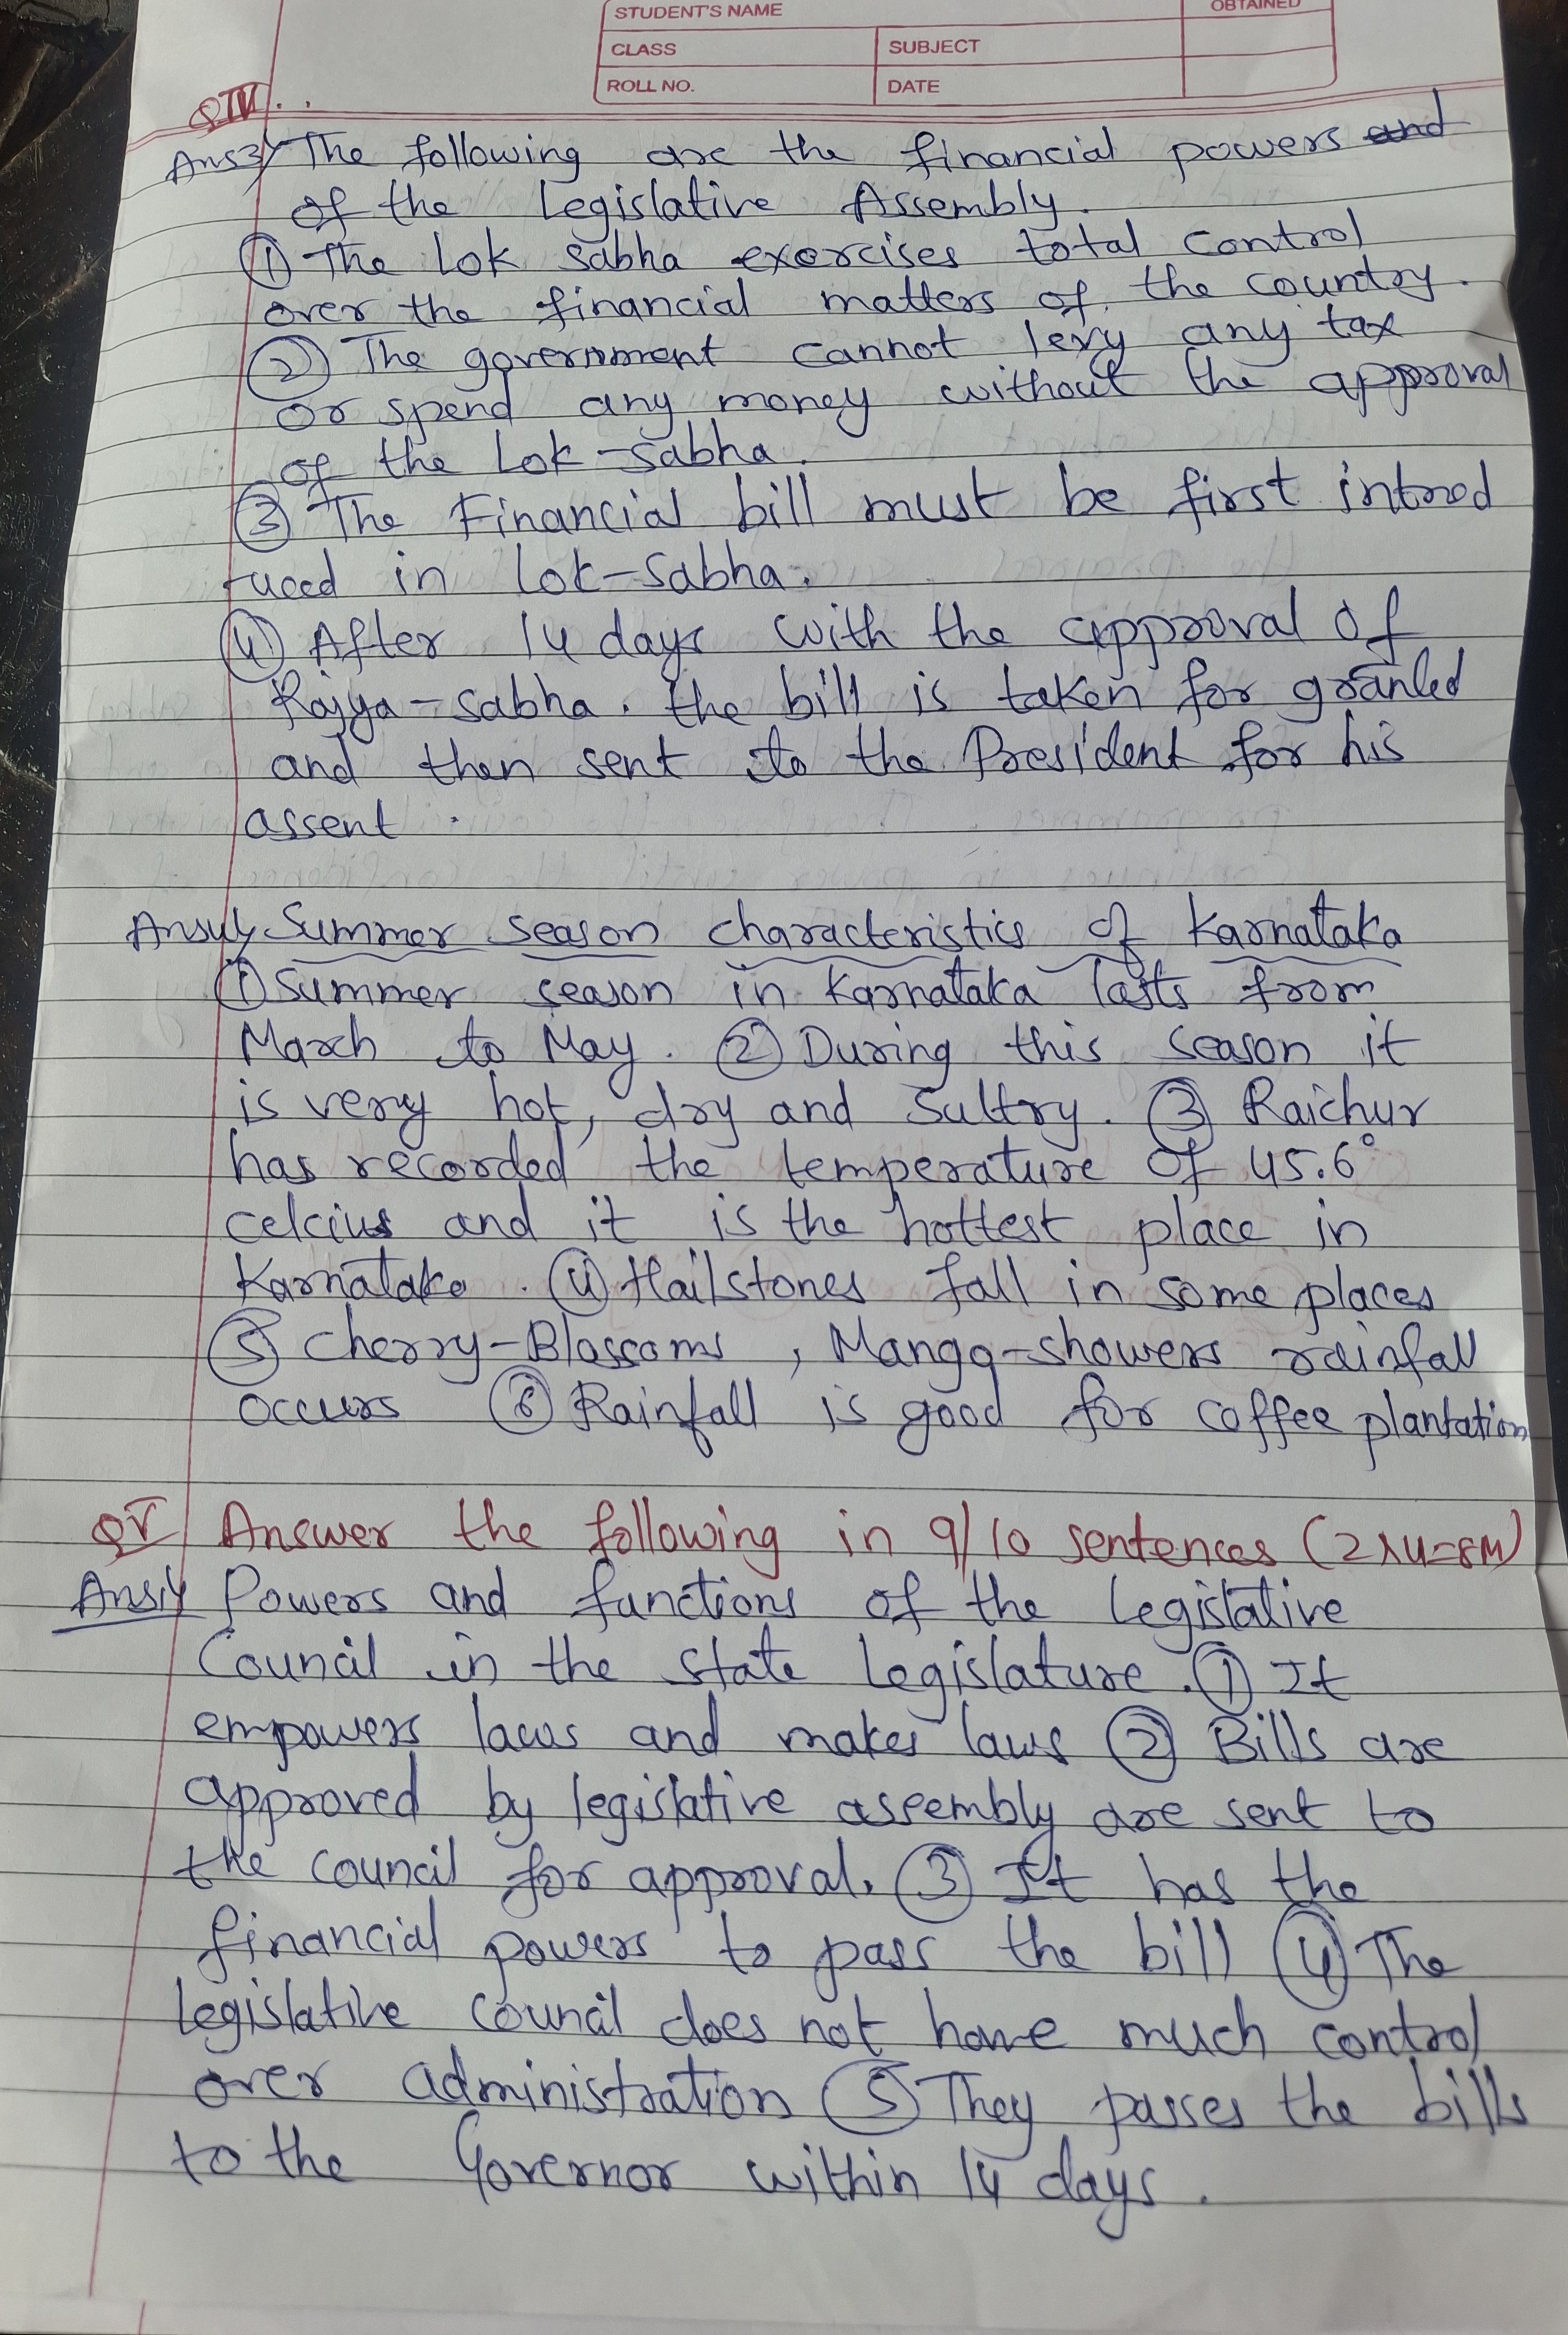 STUDENT'S NAME
OBTAINED
CLASS
SUBJECT
ROLL NO.
DATE
QIV...
Ans3) The following are the financial powers and
of the Legislative Assembly.
① The Lok Sabha exercises total control
over the financial matters of the country.
② The government cannot levy any tax
or spend any money without the approval
of the Lok-Sabha.
③ The Financial bill must be first introd
-uced in Lok-Sabha.
④ After 14 days with the approval of
Rajya-sabha. the bill is taken for granted
and then sent to the President for his
assent.
Ans4) Summer season characteristics of Karnataka
① Summer season in Karnataka lasts from
March to May. ② During this season it
is very hot, dry and Sultry. ③ Raichur
has recorded the temperature of 45.6°
celcius and it is the hottest place in
Karnataka. ④ Hailstones fall in some places
⑤ Cherry-Blossoms, Mango-showers rainfall
occurs ⑥ Rainfall is good for coffee plantation
QV Answer the following in 9/10 sentences (2x4=8M)
Ans1) Powers and functions of the Legislative
Council in the state Legislature. ① It
empowers laws and makes laws ② Bills are
approved by legislative assembly are sent to
the council for approval. ③ It has the
financial powers to pass the bill ④ The
Legislative council does not have much control
over administration ⑤ They passes the bills
to the Governor within 14 days.